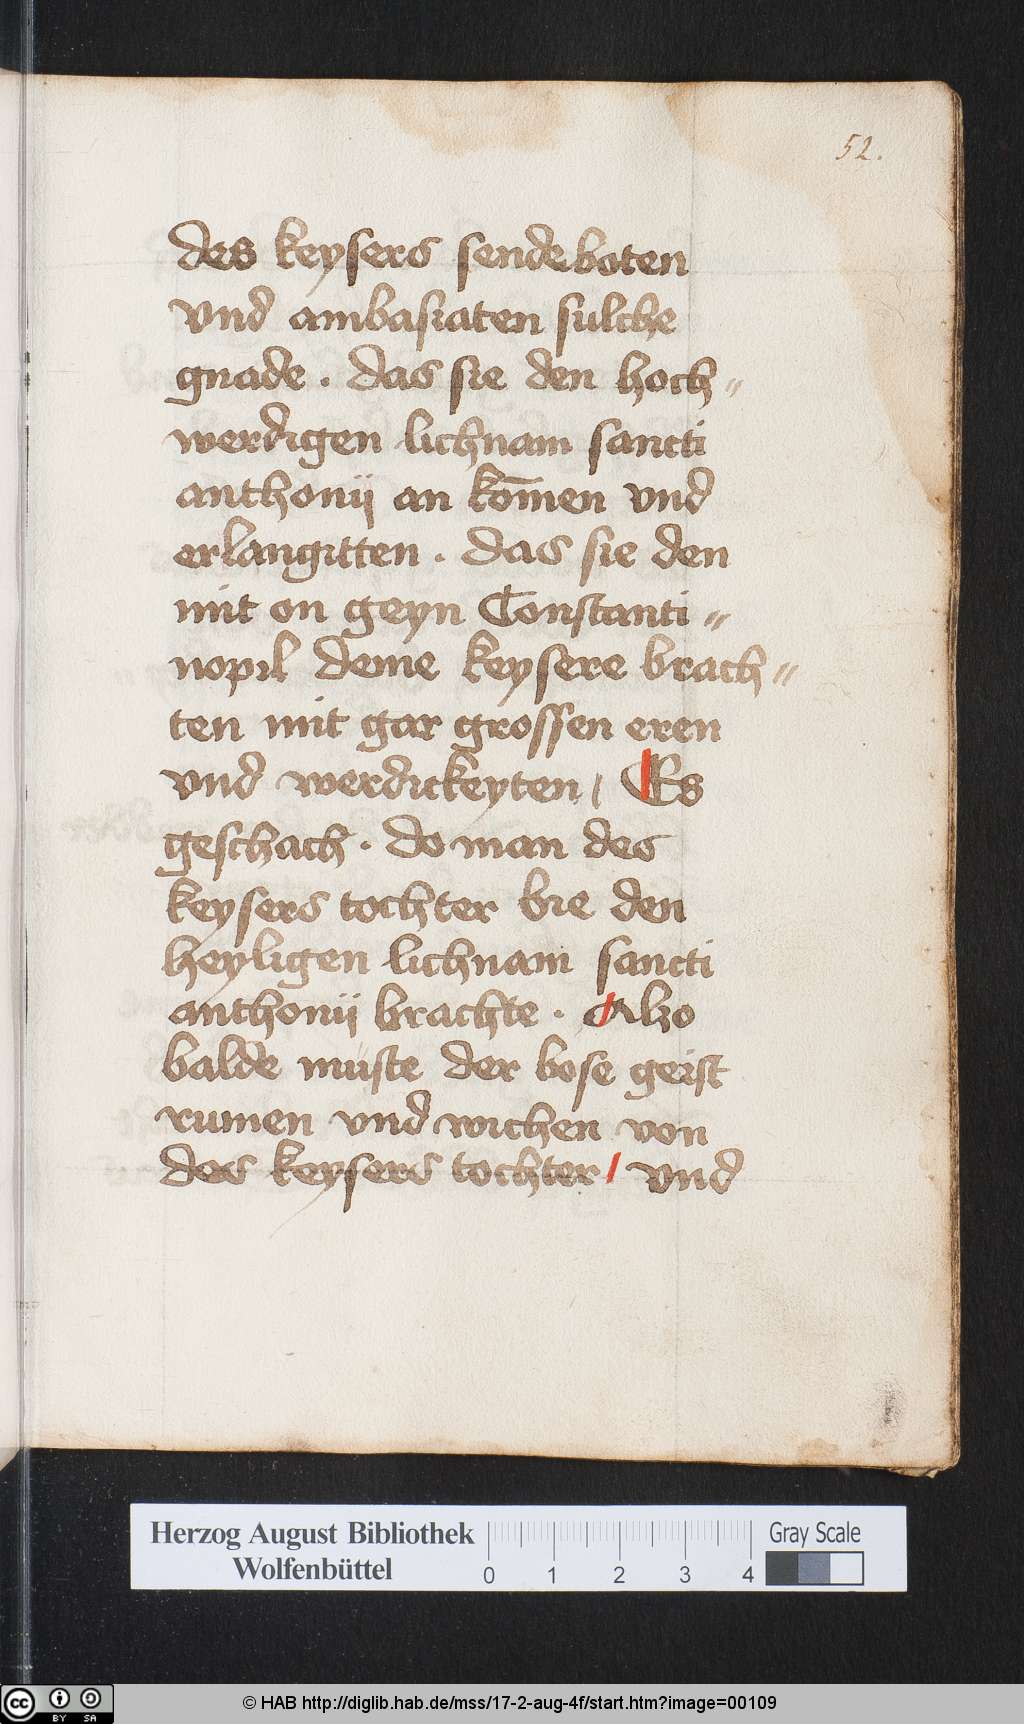 52.
des keysers sendeboten
vnd ambasiaten sulche
gnade . das sie den hoch=
werdigen lichnam sancti
anthonij an kōmen vnd
erlangitten . das sie den
mit on geyn Constanti=
nopil deme keysere brach=
ten mit gar grossen eren
vnd werdickeyten / Es
geschach . do man des
keysers tochter bie den
heyligen lichnam sancti
anthonij brachte . Alzo
balde muste der bose geist
rumen vnd wichen von
des keysers tochter / vnd
Herzog August Bibliothek
Wolfenbüttel
0 1 2 3 4
Gray Scale
cc BY SA
© HAB http://diglib.hab.de/mss/17-2-aug-4f/start.htm?image=00109